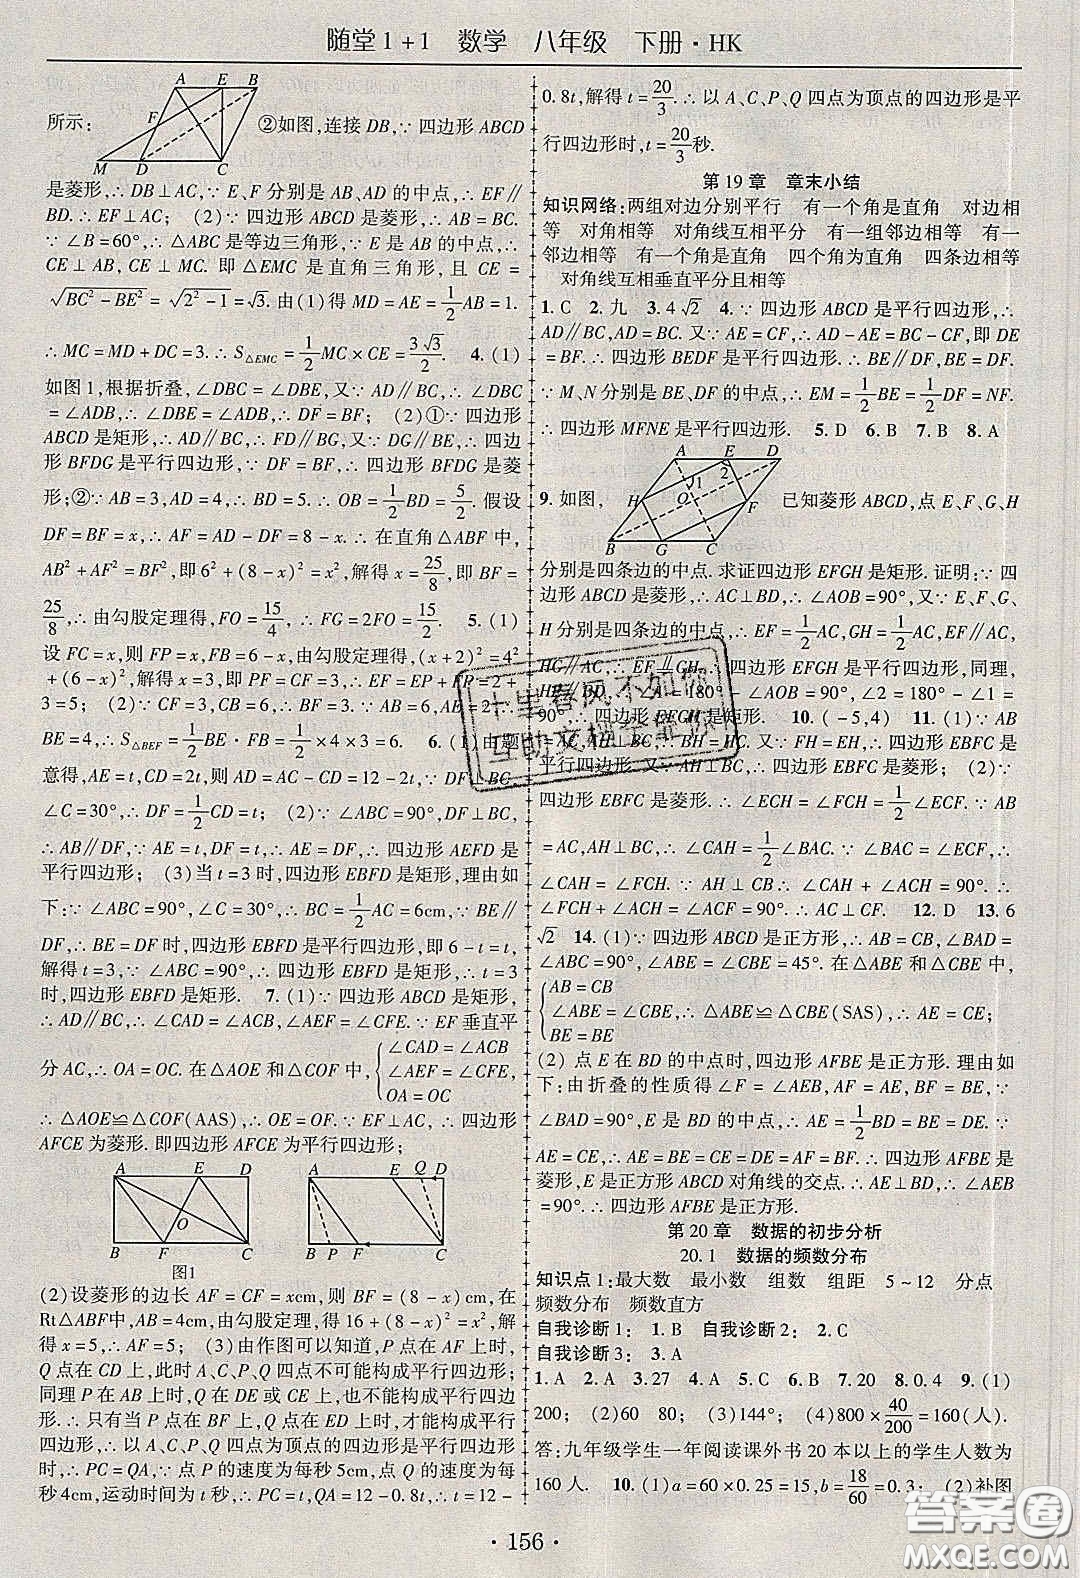 随堂1+1 数学 八年级 下册·HK
所示: ②如图,连接DB,∵四边形ABCD
A E B
F
M D C
是菱形,∴DB⊥AC,∵E、F分别是AB、AD的中点,∴EF∥
BD.∴EF⊥AC; (2)∵四边形ABCD是菱形,∴AB=BC.
∵∠B=60°,∴△ABC是等边三角形,∵E是AB的中点,∴
CE⊥AB,CE⊥MC.即△EMC是直角三角形,且CE=
√(BC²-BE²)=√(2²-1)=√3.由(1)得MD=AE=1/2AB=1.
∴MC=MD+DC=3.∴S△EMC=1/2MC×CE=3√3/2. 4.(1)
如图1,根据折叠,∠DBC=∠DBE,又∵AD∥BC,∴∠DBC
=∠ADB,∴∠DBE=∠ADB,∴DF=BF; (2)①∵四边形
ABCD是矩形,∴AD∥BC,∴FD∥BG,又∵DG∥BE,∴四边
形BFDG是平行四边形,∵DF=BF,∴四边形BFDG是菱
形;②∵AB=3,AD=4,∴BD=5.∴OB=1/2BD=5/2.假设
DF=BF=x,∴AF=AD-DF=8-x.∴在直角△ABF中,
AB²+AF²=BF²,即6²+(8-x)²=x²,解得x=25/8,即BF=
25/8,∴由勾股定理得,FO=15/4,∴FG=2FO=15/2. 5.(1)
设FC=x,则FP=x,FB=6-x,由勾股定理得,(x+2)²=4²
+(6-x)²,解得x=3,即FC=3,∴EF=EP+FP=2+
3=5; (2)∵CF=3,CB=6,∴FB=3,∵EA=2,∴
BE=4,∴S△BEF=1/2BE·FB=1/2×4×3=6. 6.(1)由题
意得,AE=t,CD=2t,则AD=AC-CD=12-2t,∵DF⊥BC,
∠C=30°,∴DF=1/2CD=t; (2)∵∠ABC=90°,DF⊥BC,
∴AB∥DF,∵AE=t,DF=t,∴AE=DF,∴四边形AEFD是
平行四边形; (3)当t=3时,四边形EBFD是矩形,理由如
下:∵∠ABC=90°,∠C=30°,∴BC=1/2AC=6cm,∵BE∥
DF,∴BE=DF时,四边形EBFD是平行四边形,即6-t=t,
解得t=3,∵∠ABC=90°,∴四边形EBFD是矩形,∴t=3
时,四边形EBFD是矩形. 7.(1)∵四边形ABCD是矩形,
∴AD∥BC,∴∠CAD=∠ACB,∠AEF=∠CFE.∵EF垂直平
分AC,∴OA=OC.在△AOE和△COF中,
∠CAD=∠ACB
∠AEF=∠CFE,
OA=OC
∴△AOE≌△COF(AAS),∴OE=OF.∵EF⊥AC,∴四边形
AFCE为菱形.即四边形AFCE为平行四边形;
A E D
O
B F C
图1
A E Q D
B P F C
(2)设菱形的边长AF=CF=xcm,则BF=(8-x)cm,在
Rt△ABF中,AB=4cm,由勾股定理,得16+(8-x)²=x²,解得
x=5,∴AF=5; (3)由作图可以知道,P点在AF上时,
Q点在CD上,此时A、C、P、Q四点不可能构成平行四边形;
同理P在AB上时,Q在DE或CE上,也不能构成平行四边
形.∴只有当P点在BF上,Q点在ED上时,才能构成平行
四边形,∴以A、C、P、Q四点为顶点的四边形是平行四边形
时,∴PC=QA,∵点P的速度为每秒5cm,点Q的速度为每
秒4cm,运动时间为t秒,∴PC=t,QA=12-0.8t,∴t=12-
0.8t,解得t=20/3.∴以A、C、P、Q四点为顶点的四边形是平
行四边形时,t=20/3秒.
第19章 章末小结
知识网络:两组对边分别平行 有一个角是直角 对边相
等 对角相等 对角线互相平分 有一组邻边相等 有一
邻边相等 有一个角是直角 四个角为直角 四条边相等
对角线互相垂直平分且相等
1.C 2.九 3.4√2 4.∵四边形ABCD是平行四边形,∴
AD∥BC,AD=BC.又∵AE=CF,∴AD-AE=BC-CF,即DE
=BF.∴四边形BEDF是平行四边形.∴BE∥DF,BE=DF.
∵M、N分别是BE、DF的中点,∴EM=1/2BE=1/2DF=NF.
∴四边形MFNE是平行四边形. 5.D 6.B 7.B 8.A
9.如图, 已知菱形ABCD,点E、F、G、H
A E D
O 1 2
H F
B G C
分别是四条边的中点.求证四边形EFGH是矩形.证明:∵四
边形ABCD是菱形,∴AC⊥BD,∴∠AOB=90°,又∵E、F、G、
H分别是四条边的中点,∴EF=1/2AC,GH=1/2AC,EF∥AC,
HG∥AC,∴EF∥GH,∴四边形EFGH是平行四边形,同理,
90°,∴四边形EFGH是矩形. 10.(-5,4) 11.(1)∵AB
=AC,AH⊥CB,∴BH=HC.又∵FH=EH,∴四边形EBFC是
平行四边形.又∵AH⊥BC,∴四边形EBFC是菱形; (2)∵
四边形EBFC是菱形.∴∠ECH=∠FCH=1/2∠ECF.∵AB
=AC,AH⊥BC,∴∠CAH=1/2∠BAC.∵∠BAC=∠ECF,∴
∠CAH=∠FCH.∵AH⊥CB∴∠CAH+∠ACH=90°.∴
∠FCH+∠ACH=∠ACF=90°.∴AC⊥CF. 12.D 13.6
√2 14.(1)∵四边形ABCD是正方形,∴AB=CB,∠BAD=
∠ABC=90°,∴∠ABE=∠CBE=45°.在△ABE和△CBE中,
AB=CB
∠ABE=∠CBE,∴△ABE≌△CBE(SAS),∴AE=CE;
BE=BE
(2)点E在BD的中点时,四边形AFBE是正方形.理由如
下:由折叠的性质得∠F=∠AEB,AF=AE,BF=BE,∵
∠BAD=90°,E是BD的中点,∴AE=1/2BD=BE=DE,∵
AE=CE,∴AE=BE=CE=DE=AF=BF,∴四边形AFBE是
菱形,E是正方形ABCD对角线的交点.∴AE⊥BD,∴∠AEB
=90°,∴四边形AFBE是正方形.
第20章 数据的初步分析
20.1 数据的频数分布
知识点1:最大数 最小数 组数 组距 5~12 分点
频数分布 频数直方
自我诊断1: 1.B 自我诊断2: 2.C
自我诊断3: 3.A
1.A 2.A 3.27 4.A 5.C 6.B 7.20 8.0.4 9.(1)
200; (2)60 80; (3)144°; (4)800×40/200=160(人).
答:九年级学生一年阅读课外书20本以上的学生人数为
160人. 10.(1)a=60×0.25=15,b=18/60=0.3; (2)补图
十里春风不如你
互助文档全靠你
答案圈
MXQE.COM
·156·